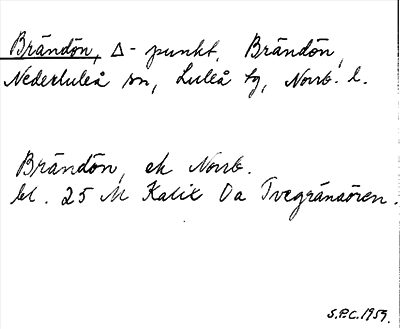 Brändön, Δ-punkt, Brändön,
Nederluleå sn, Luleå tg, Norrb. l.
Brändön, ek Norrb.
bl. 25 M Kalix 0a Tvegränsören.
S.P.C. 1959.